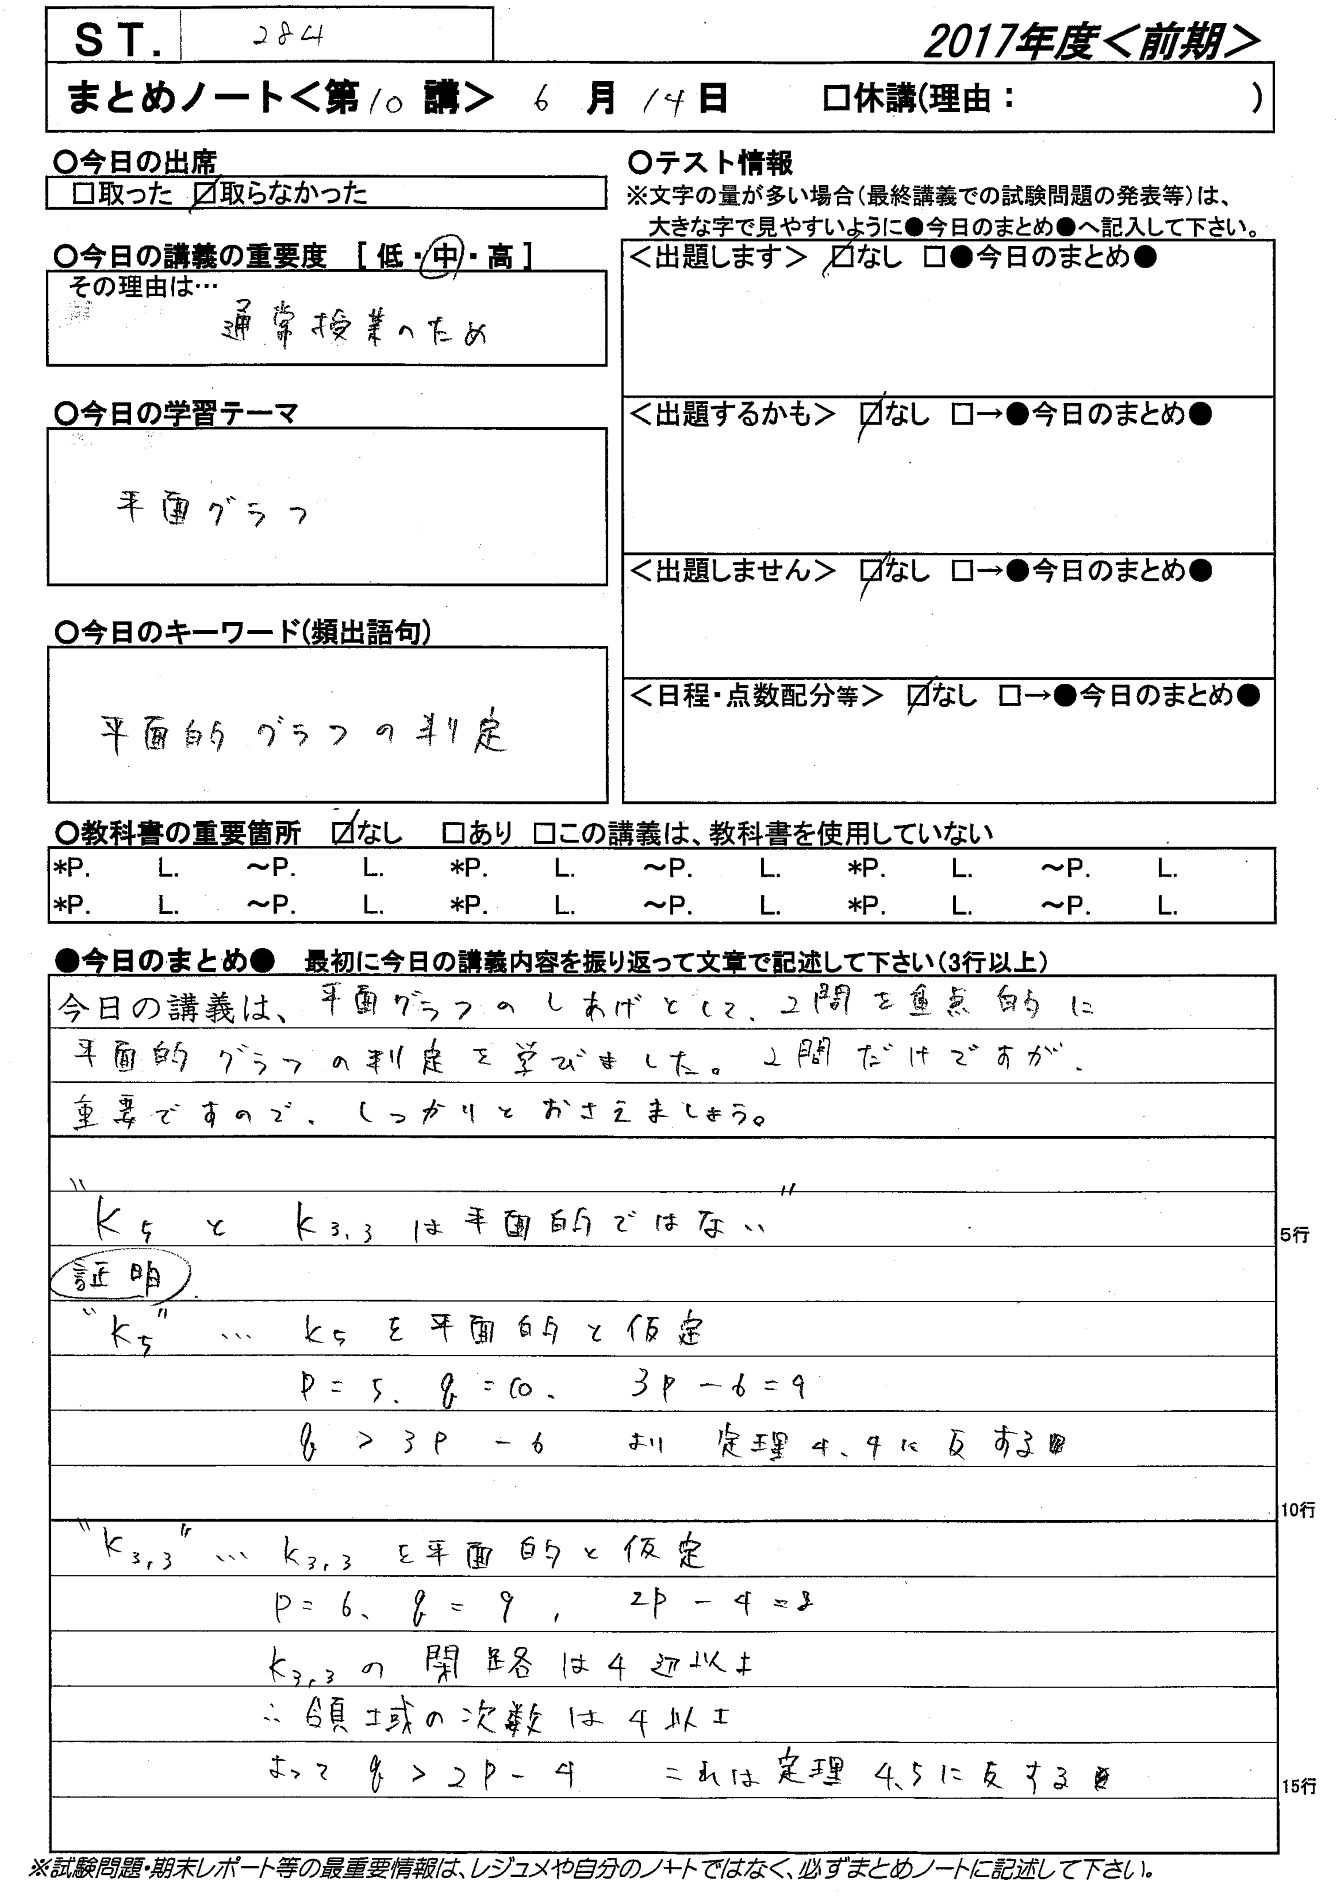 ST. 284
2017年度＜前期＞
まとめノート＜第10講＞ 6月14日 □休講(理由： )
○今日の出席
□取った ☑取らなかった
○今日の講義の重要度 [ 低・中・高 ]
その理由は…
通常授業のため
○今日の学習テーマ
平面グラフ
○今日のキーワード(頻出語句)
平面的グラフの判定
○テスト情報
※文字の量が多い場合(最終講義での試験問題の発表等)は、
大きな字で見やすいように●今日のまとめ●へ記入して下さい。
＜出題します＞ ☑なし □●今日のまとめ●
＜出題するかも＞ ☑なし □→●今日のまとめ●
＜出題しません＞ ☑なし □→●今日のまとめ●
＜日程・点数配分等＞ ☑なし □→●今日のまとめ●
○教科書の重要箇所 ☑なし □あり □この講義は、教科書を使用していない
*P. L. ～P. L. *P. L. ～P. L. *P. L. ～P. L.
*P. L. ～P. L. *P. L. ～P. L. *P. L. ～P. L.
●今日のまとめ● 最初に今日の講義内容を振り返って文章で記述して下さい(3行以上)
今日の講義は、平面グラフのしあげとして、2問を重点的に
平面的グラフの判定を学びました。2問だけですが、
重要ですので、しっかりとおさえましょう。
"K5 と K3,3 は平面的ではない" 5行
証明
"K5" … K5を平面的と仮定
p=5、q=10、 3p-6=9
q > 3p-6 より 定理4.4に反する
10行
"K3,3" … K3,3を平面的と仮定
p=6、q=9, 2p-4=8
K3,3の閉路は4辺以上
∴領域の次数は4以上
よって q>2p-4 これは定理4.5に反する 15行
※試験問題・期末レポート等の最重要情報は、レジュメや自分のノートではなく、必ずまとめノートに記述して下さい。